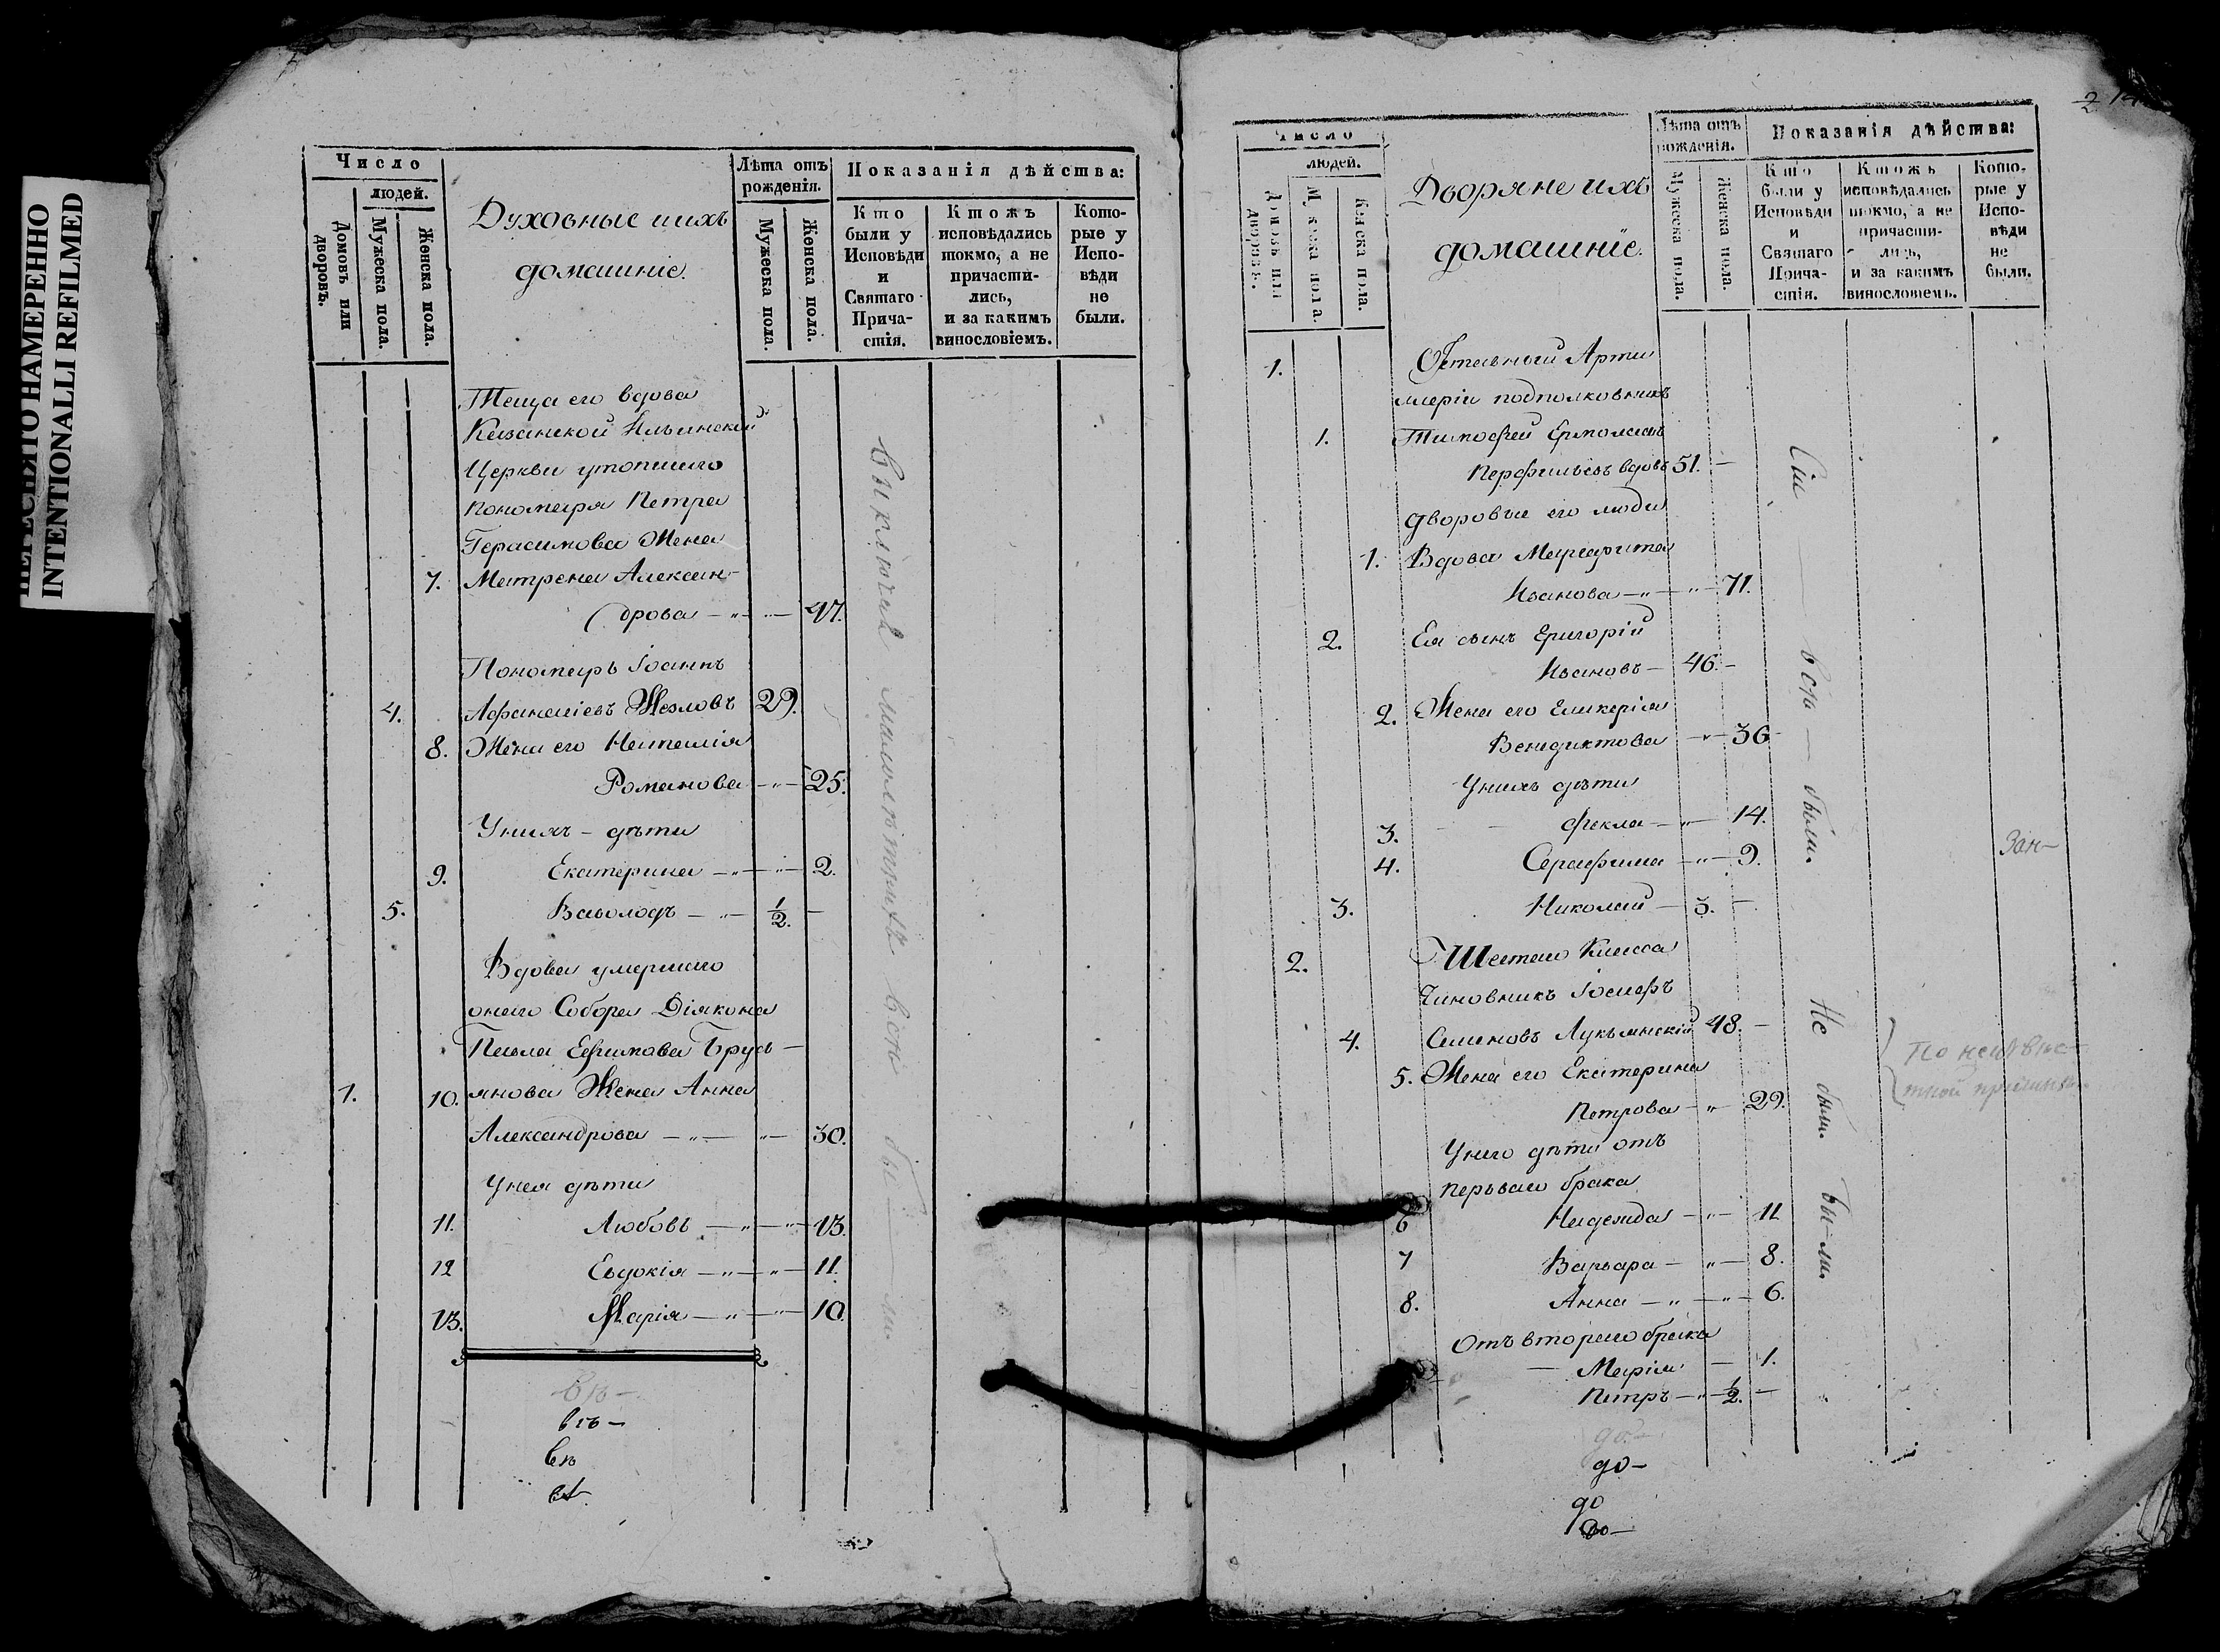 ПЕРЕСНЯТО НАМЕРЕННО
INTENTIONALLI REFILMED
Число
людей.
Домовъ или дворовъ.
Мужеска пола.
Женска пола.
Духовные и ихъ
домашніе.
Лѣта отъ
рожденія.
Мужеска пола.
Женска пола.
Показанія дѣйства:
Кто
были у
Исповѣди
и
Святаго
Прича-
стія.
Ктожъ
исповѣдались
токмо, а не
причасти-
лись,
и за какимъ
винословіемъ.
Кото-
рые у
Испо-
вѣди
не
были.
Теща его вдова
Казанской Ильинской
Церкви утопшаго
пономаря Петра
Герасимова Жена
7. Матрена Алексан-
дрова — 47.
Пономарь Іоаннъ
4. Афанасіевъ Жезловъ 29.
8. Жена его Наталія
Романова — 25.
У нихъ — дѣти
9. Екатерина — 2.
5. Всеволодъ — 1/2. —
Вдова умершаго
онаго Собора Діякона
Павла Ефимова Брус-
1. 10. янова Жена Анна
Александрова — 30.
У нея дѣти
11. Любовь — 13.
12 Евдокія — 11.
13. Марія — 10.
Выключая малолѣтныхъ всѣ были
въ —
въ —
въ
214
Число
людей.
Домовъ или дворовъ.
Мужеска пола.
Женска пола.
Дворяне и ихъ
домашніе.
Лѣта отъ
рожденія.
Мужеска пола.
Женска пола.
Показанія дѣйства:
Кто
были у
Исповѣди
и
Святаго
Прича-
стія.
Ктожъ
исповѣдались
токмо, а не
причасти-
лись,
и за какимъ
винословіемъ.
Кото-
рые у
Испо-
вѣди
не
были.
1. Отставный Арти
ллеріи подполковникъ
1. Тимофей Ермолаевъ
Перфильевъ вдовъ 51. —
дворовые его люди
1. Вдова Маргарита
Иванова — 71.
2. Ея сынъ Григорій
Ивановъ — 46. —
2. Жена его Гликерія
Венедиктова — 36 —
У нихъ дѣти
3. Фекла — 14.
4. Серафима — 9.
3. Николай — 3. —
2. Шестаго Класса
Чиновникъ Іосифъ
4. Семеновъ Лукьянскій 48. —
5. Жена его Екатерина
Петрова — 29.
У него дѣти отъ
перваго брака
6 Надежда — 11
7 Варвара — 8.
8. Анна — 6.
Отъ втораго брака
— Марія — 1.
Петръ — 1/2. —
Сіи — всѣ — были.
Не были.
Были.
Зан—
По неизвѣс-
тной причинѣ
до —
до —
до
до —